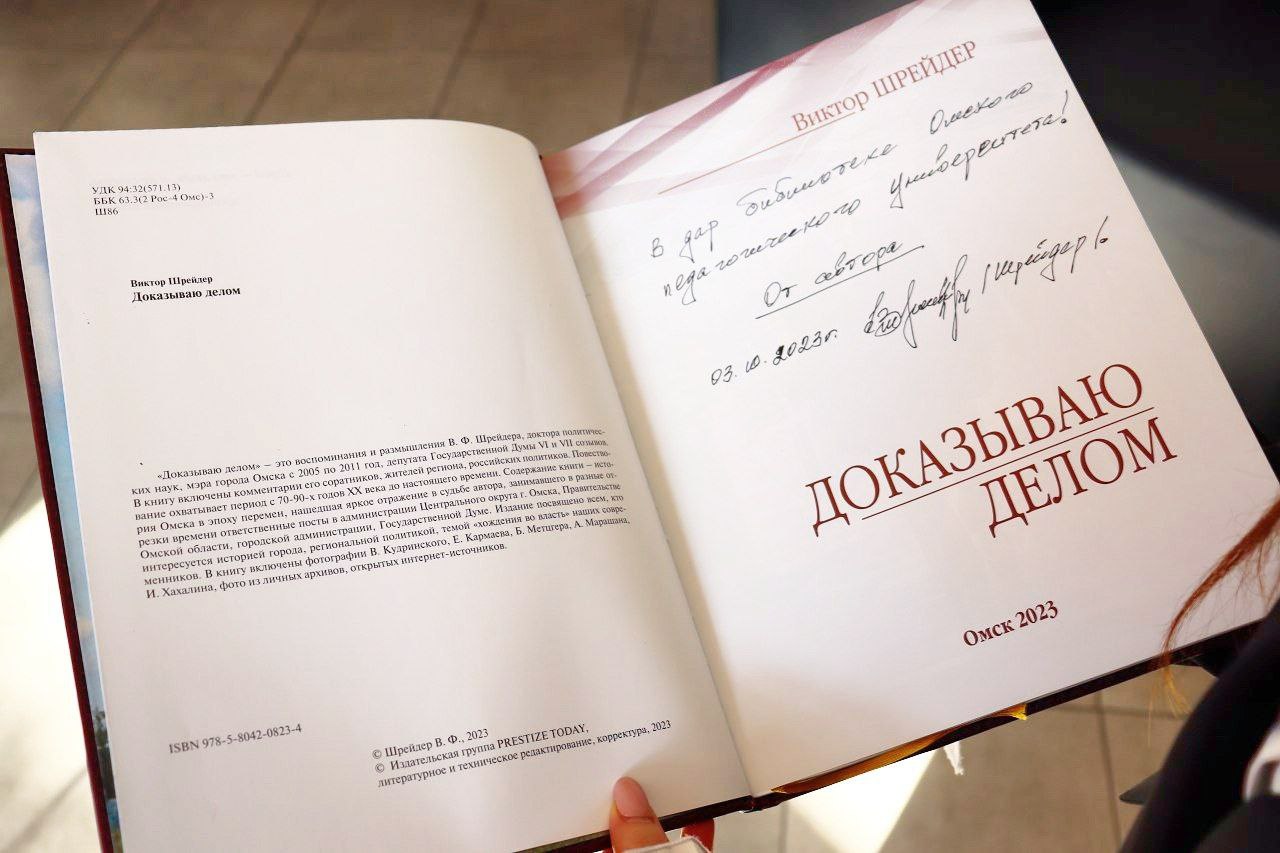 УДК 94:32(571.13)
ББК 63.3(2 Рос-4 Омс)-3
Ш86
Виктор Шрейдер
Доказываю делом
«Доказываю делом» – это воспоминания и размышления В. Ф. Шрейдера, доктора политичес-
ких наук, мэра города Омска с 2005 по 2011 год, депутата Государственной Думы VI и VII созывов.
В книгу включены комментарии его соратников, жителей региона, российских политиков. Повество-
вание охватывает период с 70-90-х годов XX века до настоящего времени. Содержание книги – исто-
рия Омска в эпоху перемен, нашедшая яркое отражение в судьбе автора, занимавшего в разные от-
резки времени ответственные посты в администрации Центрального округа г. Омска, Правительстве
Омской области, городской администрации, Государственной Думе. Издание посвящено всем, кто
интересуется историей города, региональной политикой, темой «хождения во власть» наших совре-
менников. В книгу включены фотографии В. Кудринского, Е. Кармаева, Б. Метцгера, А. Марашана,
И. Хахалина, фото из личных архивов, открытых интернет-источников.
ISBN 978-5-8042-0823-4
© Шрейдер В. Ф., 2023
© Издательская группа PRESTIZE TODAY,
литературное и техническое редактирование, корректура, 2023
Виктор ШРЕЙДЕР
В дар библиотеке Омского
педагогического университета!
От автора
03.10.2023г. /Шрейдер/
ДОКАЗЫВАЮ
ДЕЛОМ
Омск 2023